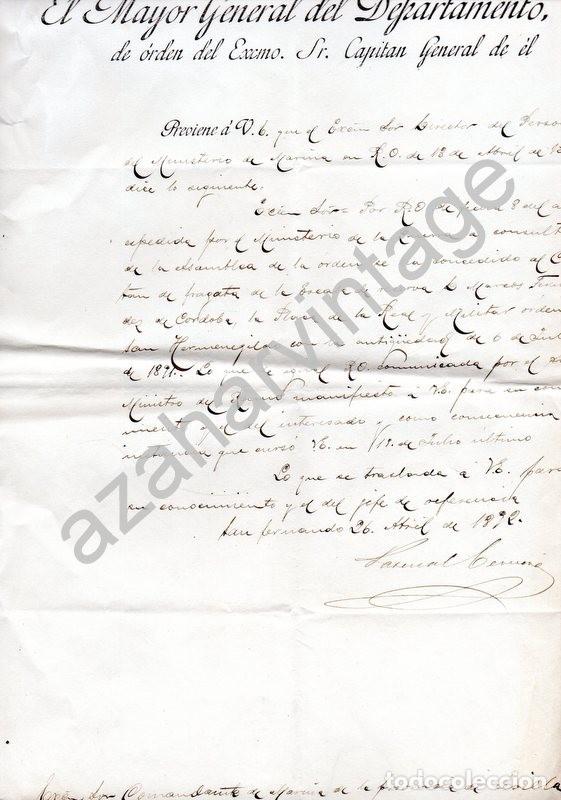 El Mayor General del Departamento,
de órden del Excmo. Sr. Capitan General de él
Previene á V. E. que el Excmo Sor Director del Person
del Ministerio de Marina en R.O. de 18 de Abril de
dice lo siguiente:
Excmo Sor = Por R.O. de fecha 8 del a
expedida por el Ministerio de la Guerra á consult
de la Asamblea de la orden se ha concedido al C
tan de fragata de la Escala de reserva D. Marcos Fernan
dez de Cordoba, la Placa de la Real y Militar órden
San Hermenegildo con la antigüedad de 6 de Jul
de 1891. Lo que de igual R.O. comunicada por el
Ministro del Ramo manifiesto á V.E. para su cono
miento y el del interesado y como consecuencia
instancia que cursó V.E. en de Julio ultimo
Lo que se traslada á V.E. para
su conocimiento y el del jefe de referencia
San Fernando 26 Abril de 1892.
Pascual Cervera
Excmo Sor Comandante de Marina de la provincia de Sevilla
azaharvintage
todocoleccion